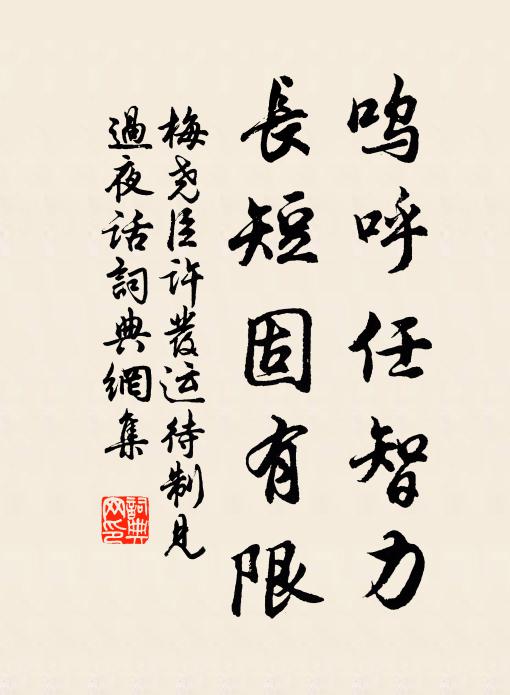 嗚呼任智力
長短固有限
梅尧臣许發运待制見
過夜话詞典網集
詞典
网印